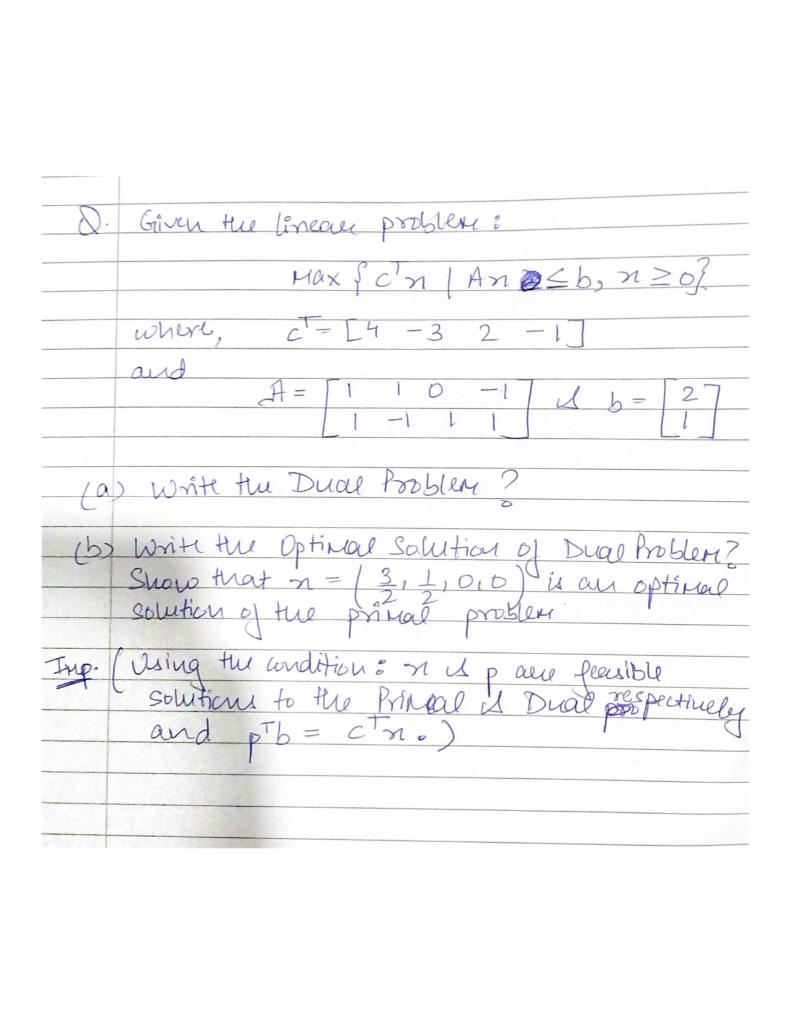 Q. Given the linear problem :
Max { cᵀx | Ax ≤ b, x ≥ 0}
where, cᵀ = [4 -3 2 -1]
and
A = [1 1 0 -1] & b = [2]
[1 -1 1 1] [1]
(a) Write the Dual Problem ?
(b) Write the Optimal Solution of Dual Problem?
Show that x = (3/2, 1/2, 0, 0) is an optimal
solution of the primal problem
Imp. (Using the condition : x & p are feasible
solutions to the Primal & Dual respectively
and pᵀb = cᵀx.)